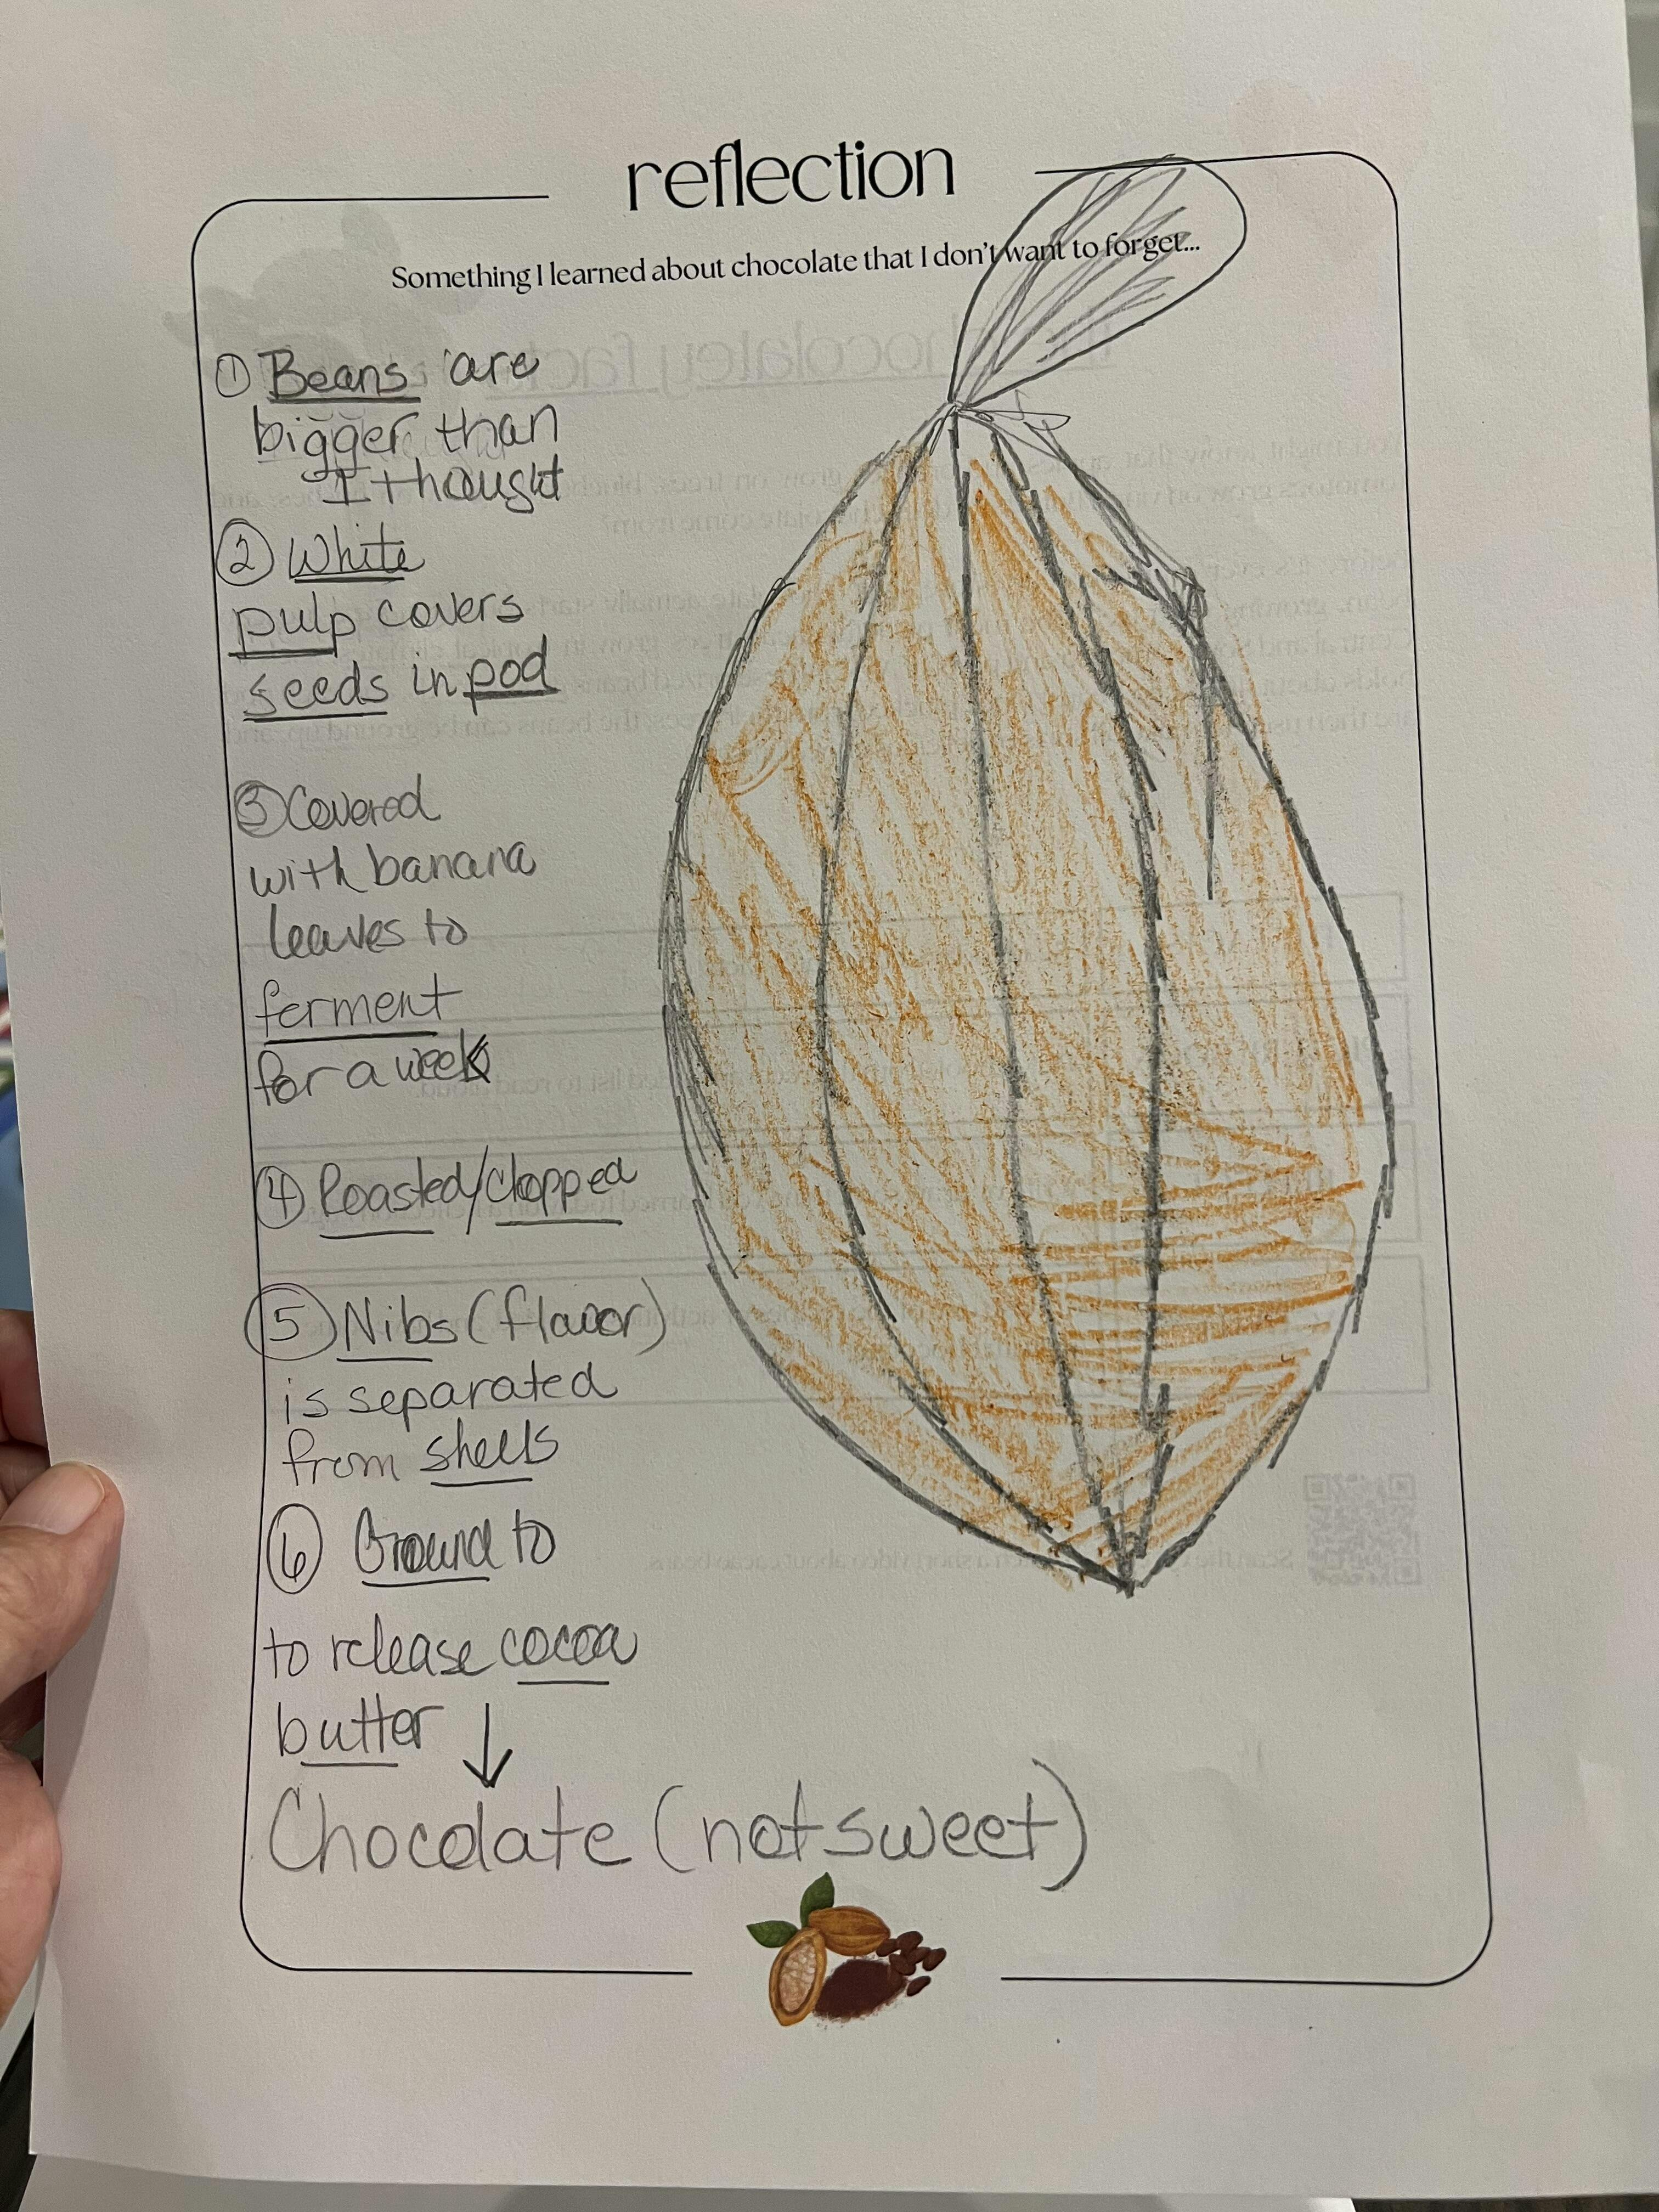 reflection
Something I learned about chocolate that I don't want to forget...
① Beans are
bigger than
I thought
② White
pulp covers
seeds in pod
③ Covered
with banana
leaves to
ferment
for a week
④ Roasted/chopped
⑤ Nibs (flavor)
is separated
from shells
⑥ Ground to
to release cocoa
butter ↓
Chocolate (not sweet)